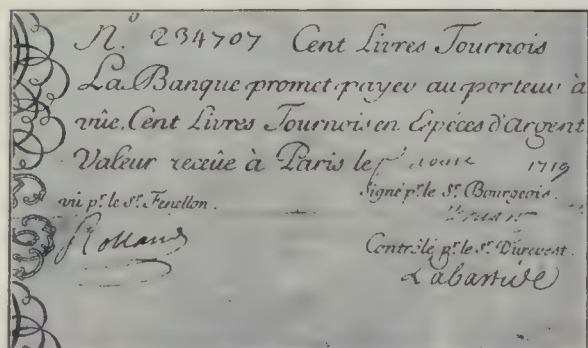 N.º 234707 Cent Livres Tournois
La Banque promet payer au porteur à
vüe, Cent Livres Tournois en Espéces d'Argent
Valeur receüe à Paris le 1719
vü p.r le S.r Fenellon.
Signé p.r le S.r Bourgeois.
Rolland
Contrôlé p.r le S.r Durevest.
Labartide